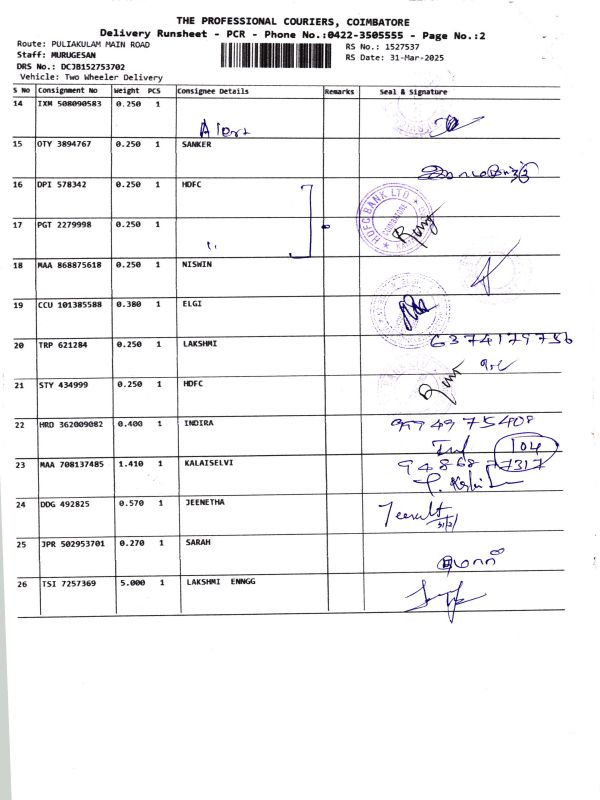 THE PROFESSIONAL COURIERS, COIMBATORE
Delivery Runsheet - PCR - Phone No.:0422-3505555 - Page No.:2
Route: PULIAKULAM MAIN ROAD
Staff: MURUGESAN
DRS No.: DCJB152753702
Vehicle: Two Wheeler Delivery
RS No.: 1527537
RS Date: 31-Mar-2025
S No Consignment No Weight PCS Consignee Details Remarks Seal & Signature
14 IXM 508090583 0.250 1
15 OTY 3894767 0.250 1 SANKER
16 DPI 578342 0.250 1 HDFC
HDFC BANK LTD
COIMBATORE
17 PGT 2279998 0.250 1
18 MAA 868875618 0.250 1 NISWIN
19 CCU 101385588 0.380 1 ELGI
20 TRP 621284 0.250 1 LAKSHMI 6374179756
21 STY 434999 0.250 1 HDFC
22 HRD 362009082 0.400 1 INDIRA 9994975408
104
23 MAA 708137485 1.410 1 KALAISELVI 9486877317
24 DDG 492825 0.570 1 JEENETHA
25 JPR 502953701 0.270 1 SARAH
26 TSI 7257369 5.000 1 LAKSHMI ENNGG